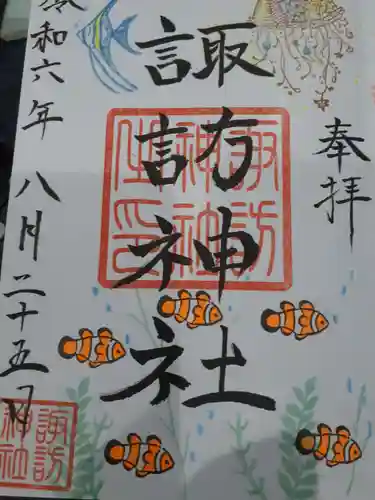 奉拝
諏訪神社
令和六年八月二十五日
諏訪
神社
印
諏訪
神社